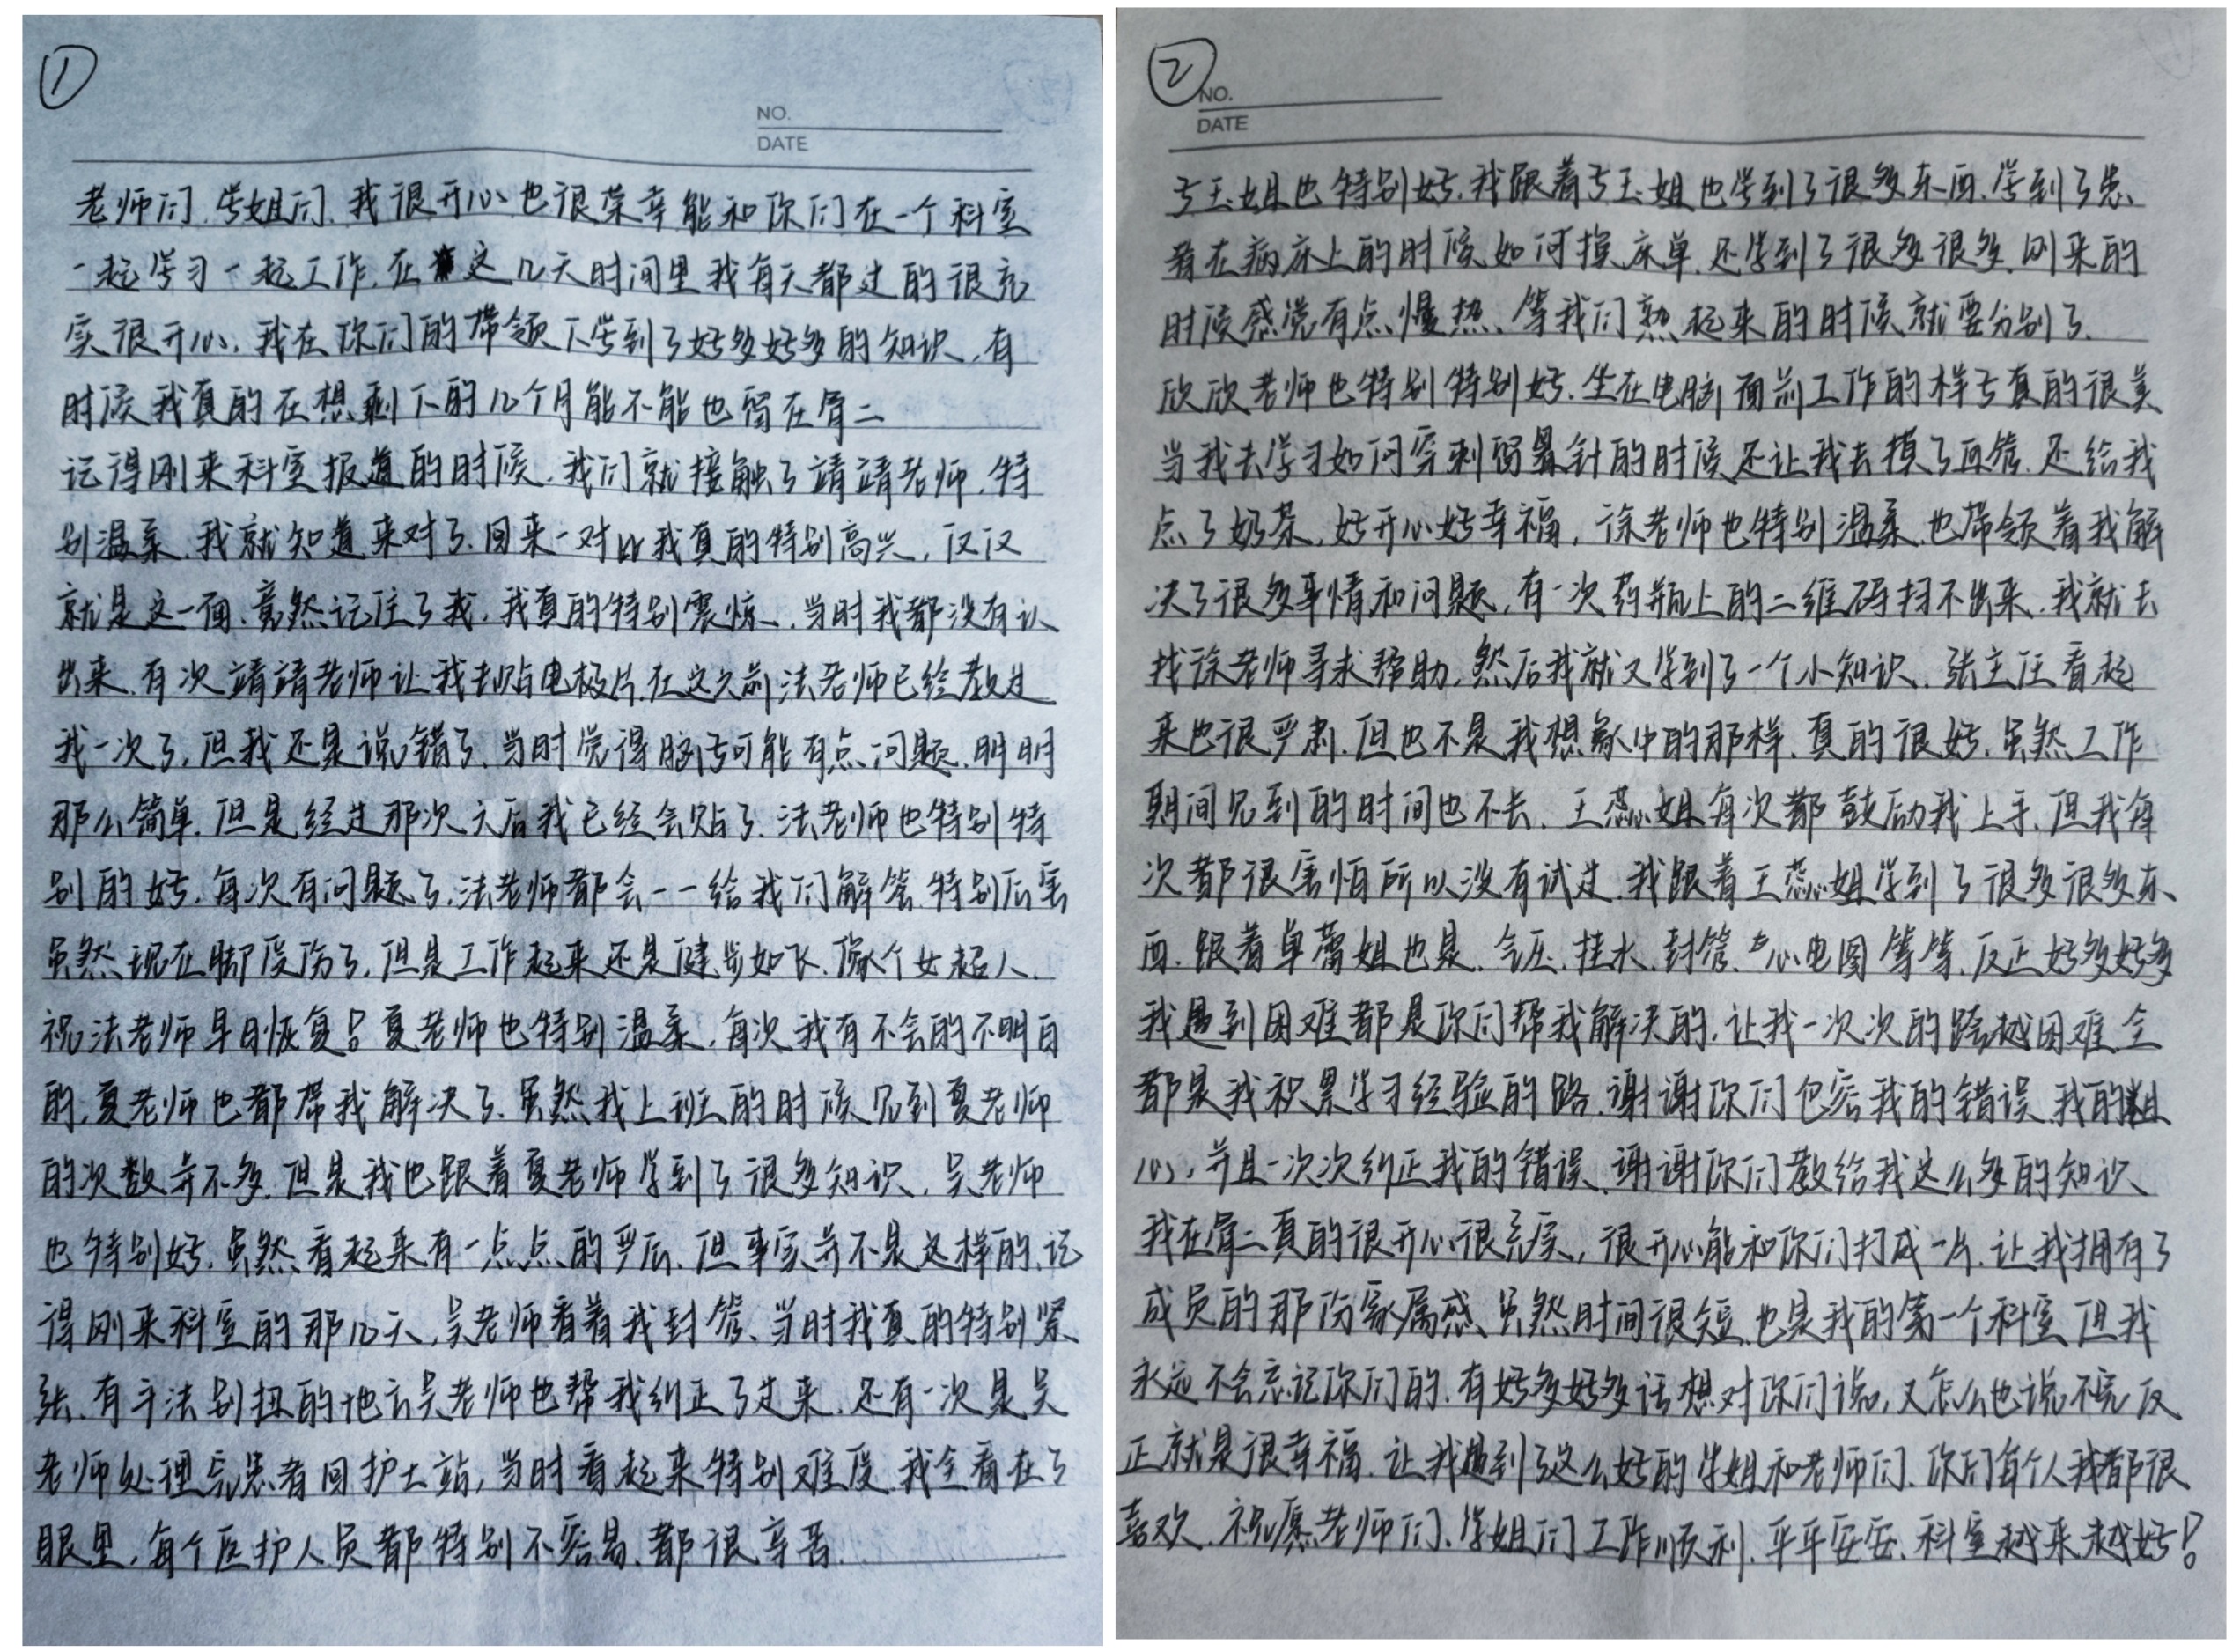 ①
NO.
DATE
老师们、学姐们、我很开心也很荣幸能和你们在一个科室
一起学习一起工作、在这几天时间里我每天都过的很充
实很开心、我在你们的带领下学到了好多好多的知识、有
时候我真的在想剩下的几个月能不能也留在骨二
记得刚来科室报道的时候、我们就接触了靖靖老师、特
别温柔、我就知道来对了、回来一对比我真的特别高兴、仅仅
就是这一面、竟然记住了我、我真的特别震惊、当时我都没有认
出来、有次靖靖老师让我去贴电极片、在这之前法老师已经教过
我一次了、但我还是说错了、当时觉得脑子可能有点问题、明明
那么简单、但是经过那次之后我已经会贴了、法老师也特别特
别的好、每次有问题了、法老师都会一一给我们解答、特别厉害
虽然现在脚受伤了、但是工作起来还是健步如飞、像个女超人、
祝法老师早日恢复！夏老师也特别温柔、每次我有不会的不明白
的、夏老师也都帮我解决了、虽然我上班的时候见到夏老师
的次数并不多、但是我也跟着夏老师学到了很多知识、吴老师
也特别好、虽然看起来有一点点的严厉、但事实并不是这样的、记
得刚来科室的那几天、吴老师看着我封管、当时我真的特别紧
张、有手法别扭的地方吴老师也帮我纠正了过来、还有一次是吴
老师处理完患者回护士站、当时看起来特别难受、我全看在了
眼里、每个医护人员都特别不容易、都很辛苦、
②
NO.
DATE
子玉姐也特别好、我跟着子玉姐也学到了很多东西、学到了患
者在病床上的时候如何换床单、还学到了很多很多、刚来的
时候感觉有点慢热、等我们熟起来的时候就要分别了、
欣欣老师也特别特别好、坐在电脑面前工作的样子真的很美
当我去学习如何穿刺留置针的时候还让我去摸了血管、还给我
点了奶茶、好开心好幸福、徐老师也特别温柔、也带领着我解
决了很多事情和问题、有一次药瓶上的二维码扫不出来、我就去
找徐老师寻求帮助、然后我就又学到了一个小知识、张主任看起
来也很严肃、但也不是我想象中的那样、真的很好、虽然工作
期间见到的时间也不长、王蕊姐每次都鼓励我上手、但我每
次都很害怕所以没有试过、我跟着王蕊姐学到了很多很多东
西、跟着单蕾姐也是、气压、挂水、封管、心电图等等、反正好多好多
我遇到困难都是你们帮我解决的、让我一次次的跨越困难、全
都是我积累学习经验的路、谢谢你们包容我的错误、我的粗
心、并且一次次纠正我的错误、谢谢你们教给我这么多的知识
我在骨二真的很开心很充实、很开心能和你们打成一片、让我拥有了
成员的那份家属感、虽然时间很短、也是我的第一个科室、但我
永远不会忘记你们的、有好多好多话想对你们说、又怎么也说不完、反
正就是很幸福、让我遇到了这么好的学姐和老师们、你们每个人我都很
喜欢、祝愿老师们、学姐们工作顺利、平平安安、科室越来越好！